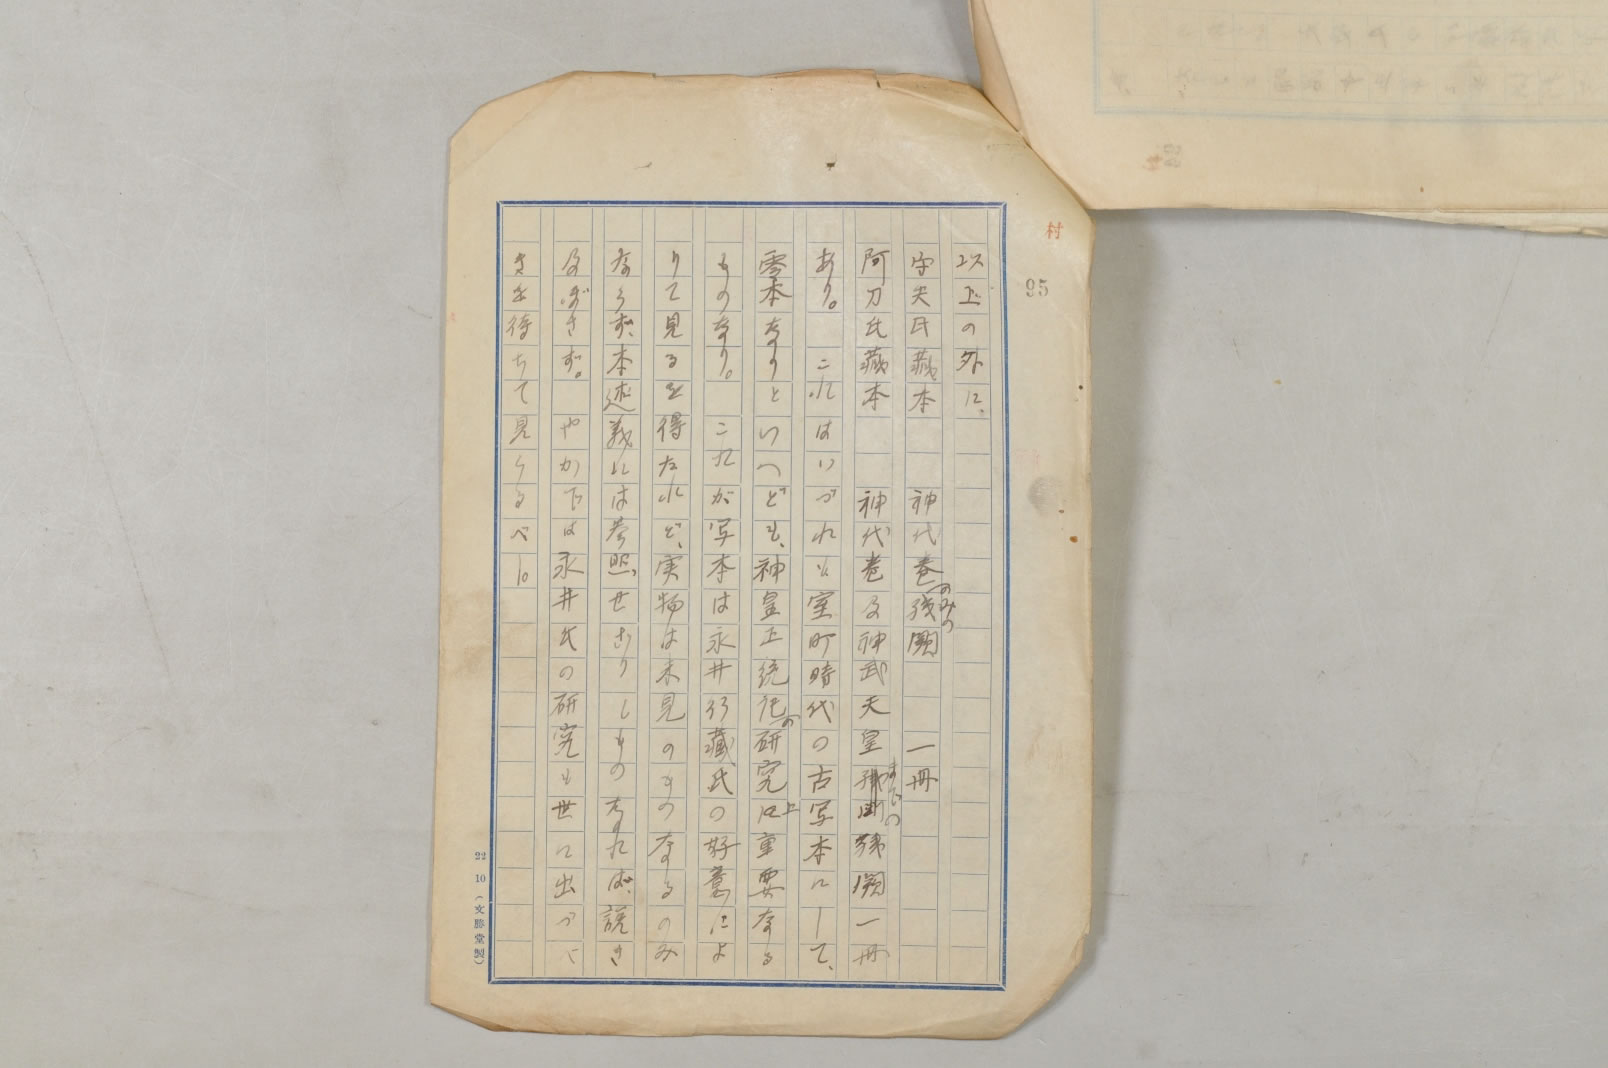 村
95
以上の外に、
守矢氏蔵本　神代巻のみの残闕　一冊
阿刀氏蔵本　神代巻及神武天皇までの残闕一冊
あり。これはいづれも室町時代の古写本にして、
零本なりといへども、神皇正統記の研究上重要なる
ものなり。これが写本は永井行蔵氏の好意によ
りて見るを得たれど、実物は未見のものなるのみ
ならず、本述義には参照せざりしものなれば、説き
及ぼさず。やがては永井氏の研究も世に出づべ
きを待ちて見らるべし。
22 10 (文勝堂製)